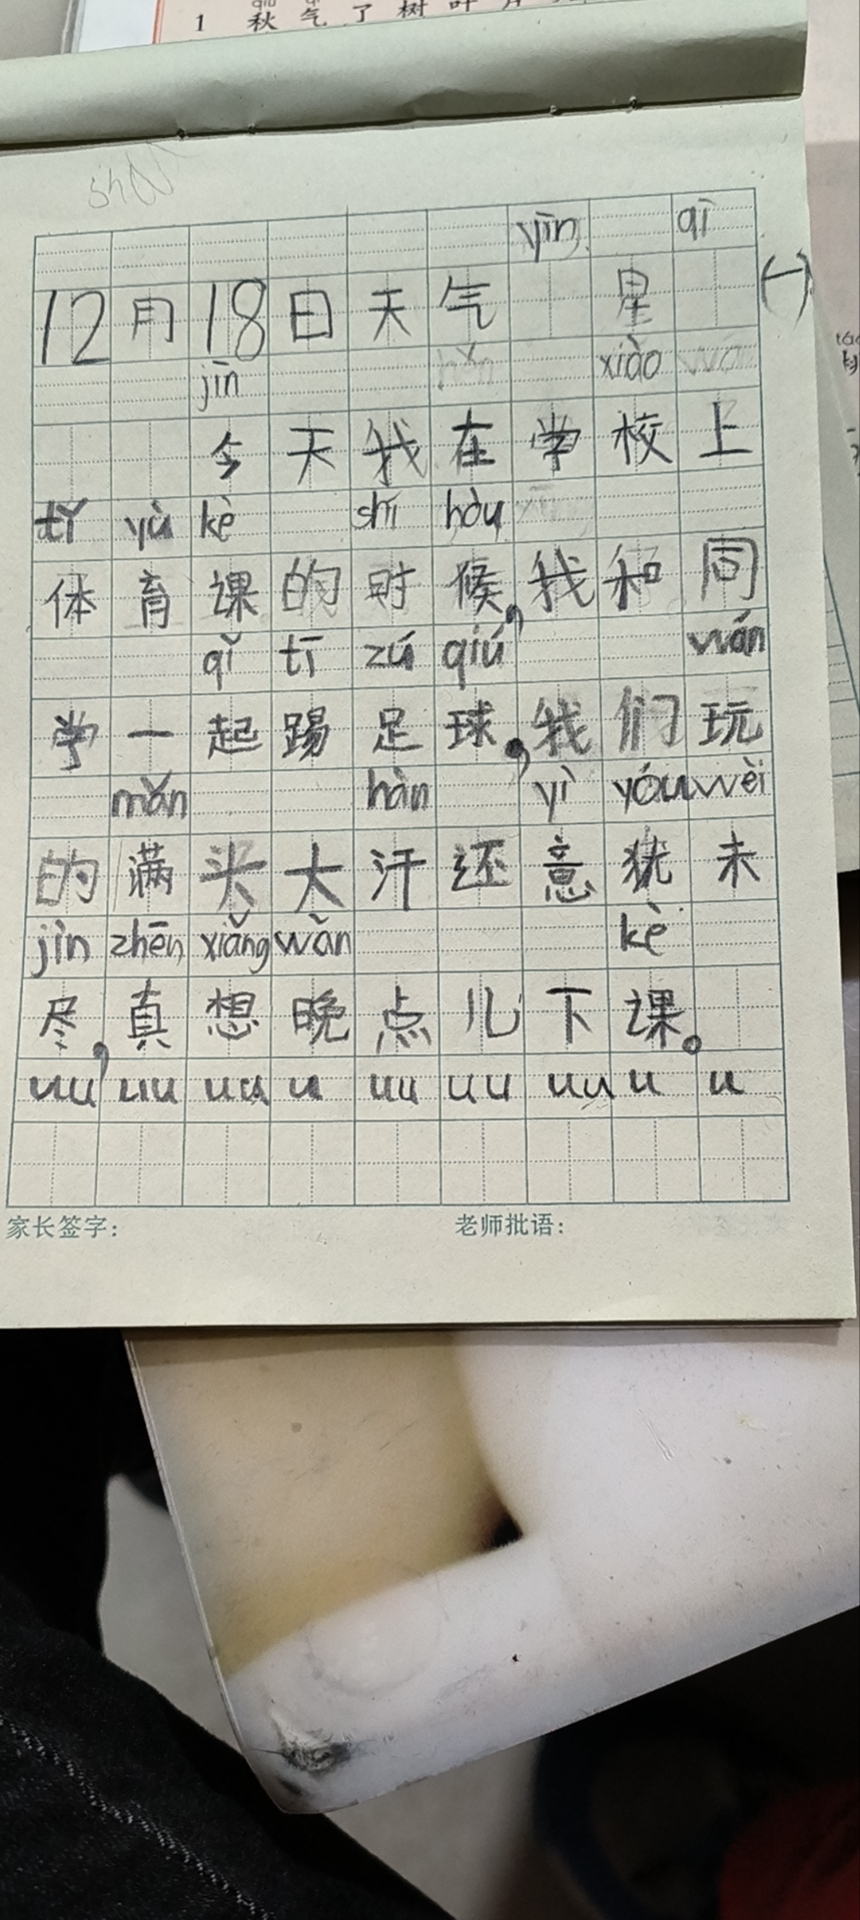 1 秋气了树叶片
yīn qī
12月18日天气 星 (一)
jīn xiào
今天我在学校上
tǐ yù kè shí hòu
体育课的时候，我和同
qǐ tī zú qiú wán
学一起踢足球，我们玩
mǎn hàn yì yóu wèi
的满头大汗还意犹未
jìn zhēn xiǎng wǎn kè
尽，真想晚点儿下课。
uu uu uu u uu uu uu u u
家长签字： 老师批语：